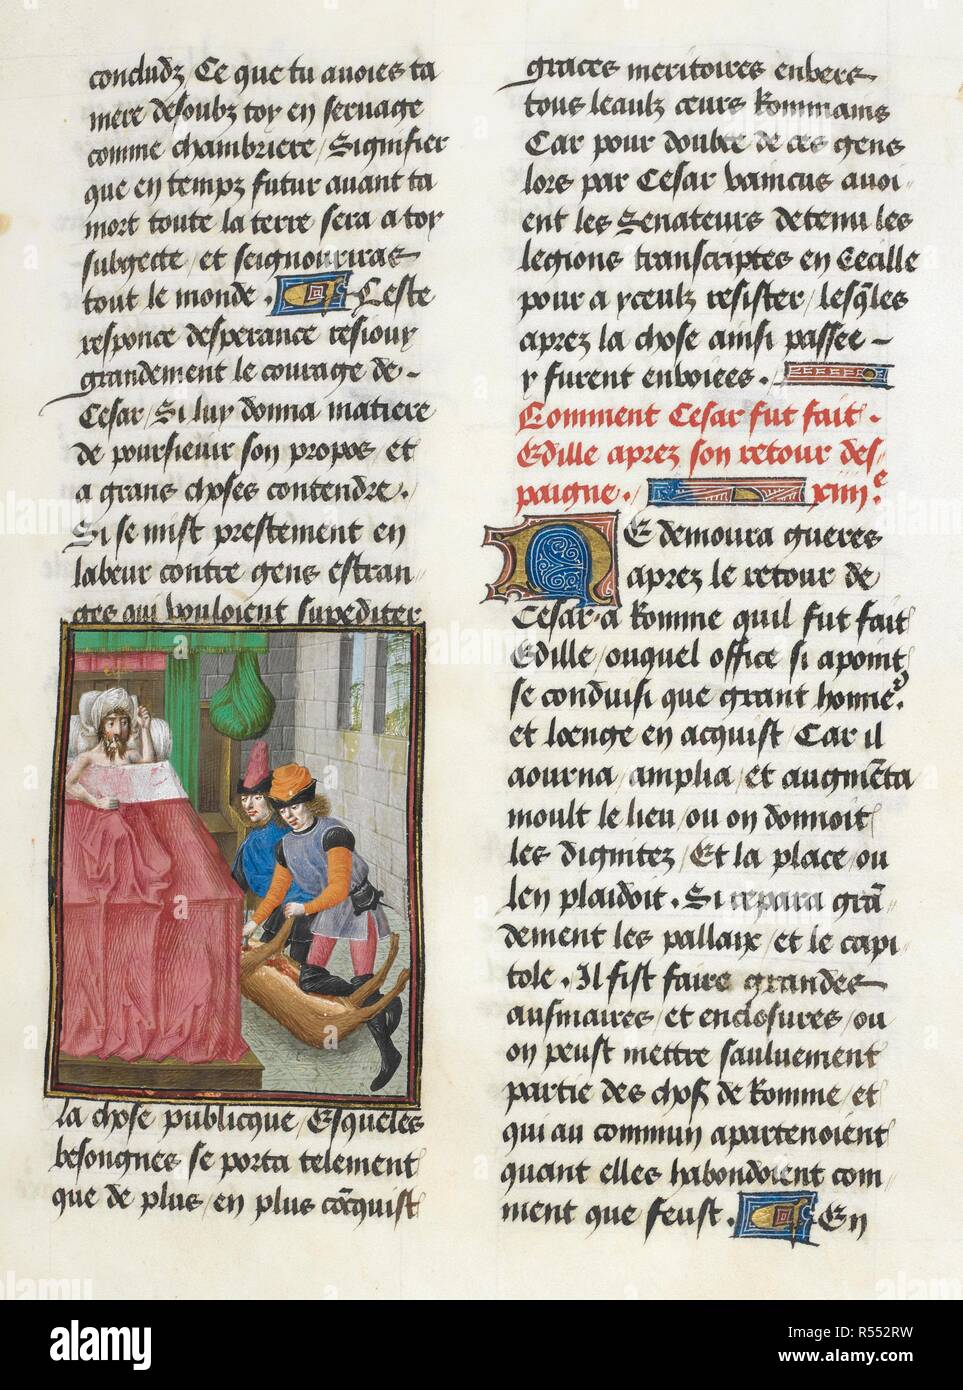 concludz / Ce que tu auoies ta
mere desoubz toy en seruage
comme chambriere / Signifier
que en tempz futur auant ta
mort toute la terre sera a toy
subgecte / et seignouriras
tout le monde . Ceste
responce desperance resiouy
grandement le courage de
Cesar / Si luy donna matiere
de poursieuir son propos / et
a grans choses contendre .
Si se mist prestement en
labeur contre gens estran
ges qui vouloient suppediter
la chose publicque / Esqueles
besongnes se porta telement
que de plus / en plus cōcquist
graces meritoires enuers
tous leaulz cœurs Rommains
Car pour doubte de ces gens
lors par Cesar vaincus auoi
ent les Senateurs detenu les
legions transcriptes en Cecille
pour a yceulz resister / lesq̄les
aprez la chose ainsi passee
y furent enuoiees .
Comment Cesar fut fait
Edille aprez son retour des
paigne . xiiije
NE demoura gueres
aprez le retour de
Cesar a Romme quil fut fait
Edille / ouquel office si apoint
se conduisi que grant honneʳ
et loenge en acquist / Car il
aourna / amplia / et augmēta
moult le lieu / ou on donnoit
les dignitez / Et la place / ou
len plaidoit . Si repara grā
dement les pallaix / et le capi
tole . Il fist faire grandes
ausmaires / et enclosures / ou
on peust mettre sauluement
partie des choses de Romme / et
qui au commun apartenoient
quant elles habondoient com
ment que feust . En
alamy
Image ID: R552RW
www.alamy.com